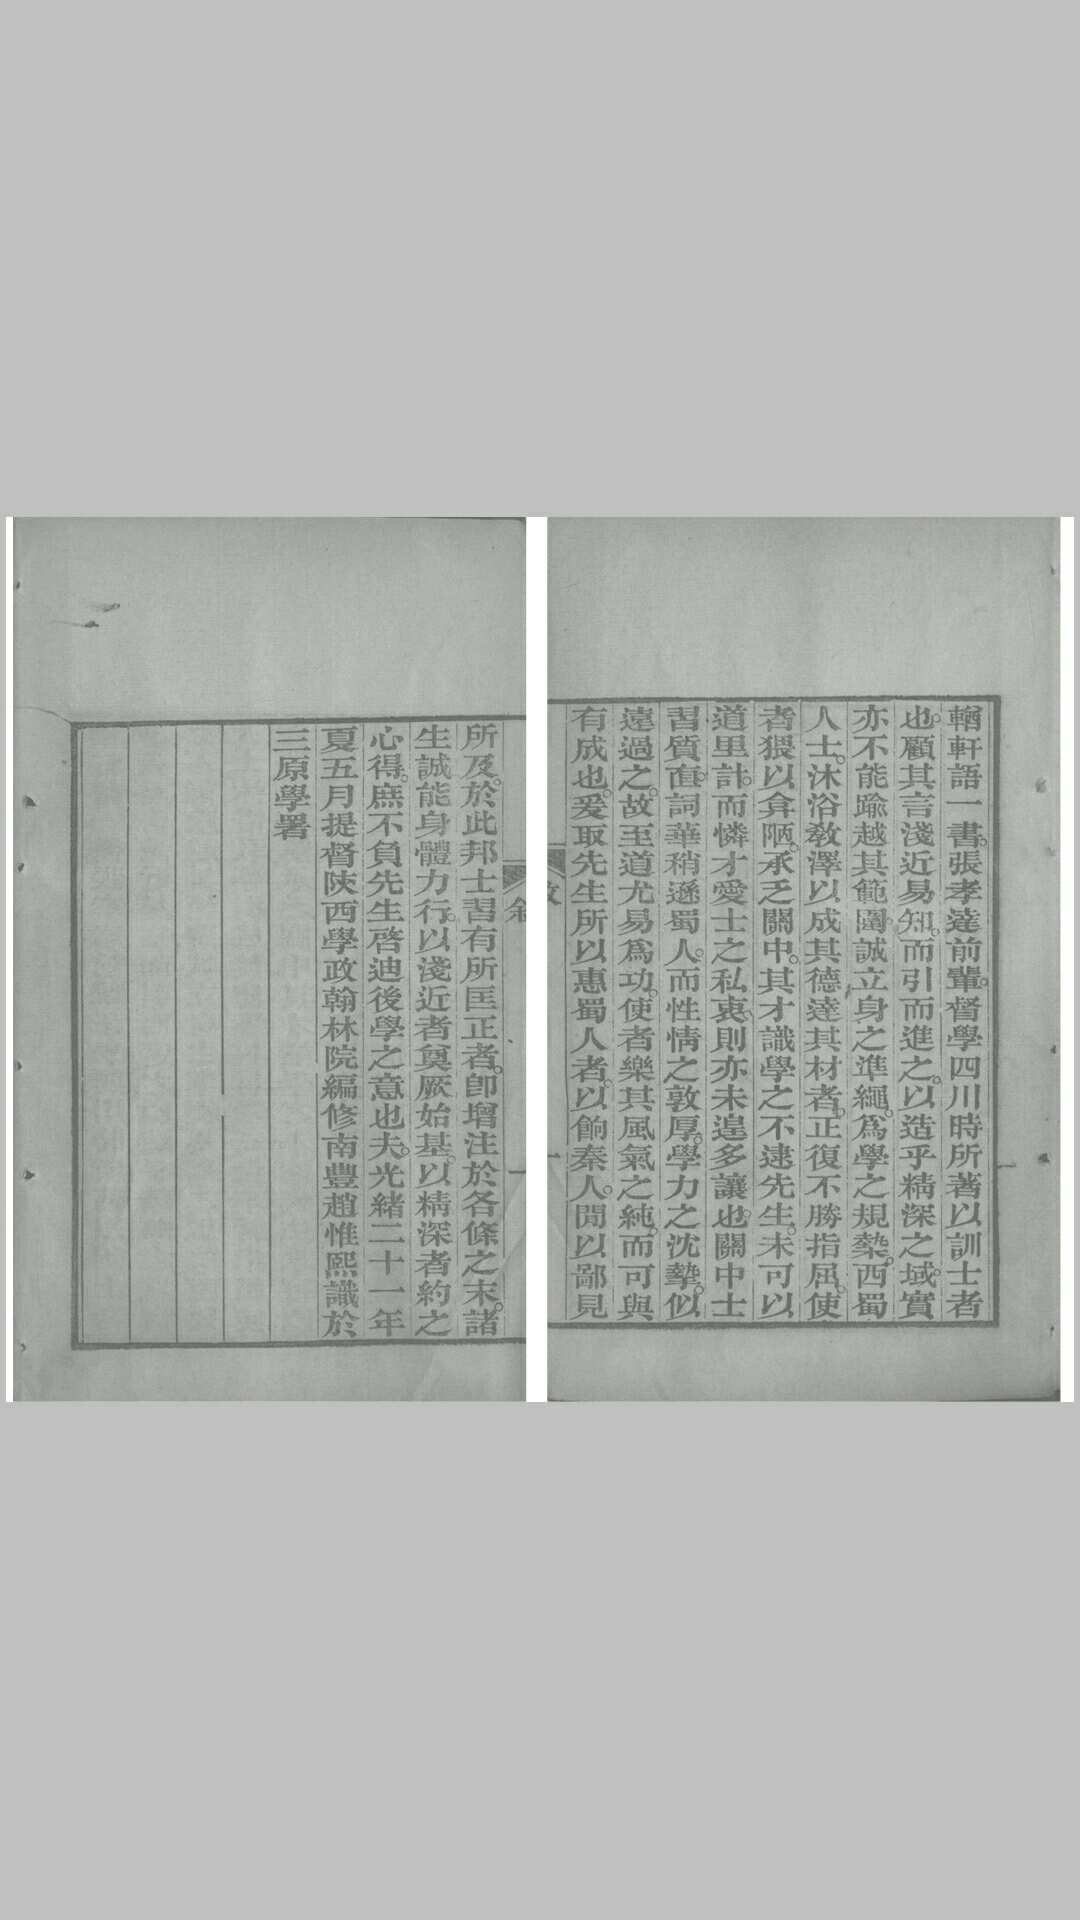 輶軒語一書。張孝達前輩。督學四川時所著以訓士者
也。顧其言淺近易知。而引而進之。以造乎精深之域。實
亦不能踰越其範圍。誠立身之準繩。爲學之規槼。西蜀
人士。沐浴敎澤以成其德達其材者。正復不勝指屈。使
者猥以弇陋。承乏關中。其才識學之不逮先生。未可以
道里計。而憐才愛士之私衷。則亦未遑多讓也。關中士
習質直。詞華稍遜蜀人。而性情之敦厚。學力之沈摯。似
遠過之。故至道尤易爲功。使者樂其風氣之純。而可與
有成也。爰取先生所以惠蜀人者。以餉秦人。閒以鄙見
敘
一
所及。於此邦士習有所匡正者。卽增注於各條之末。諸
生誠能身體力行。以淺近者奠厥始基。以精深者約之
心得。庶不負先生啓迪後學之意也夫。光緒二十一年
夏五月提督陝西學政翰林院編修南豐趙惟熙識於
三原學署